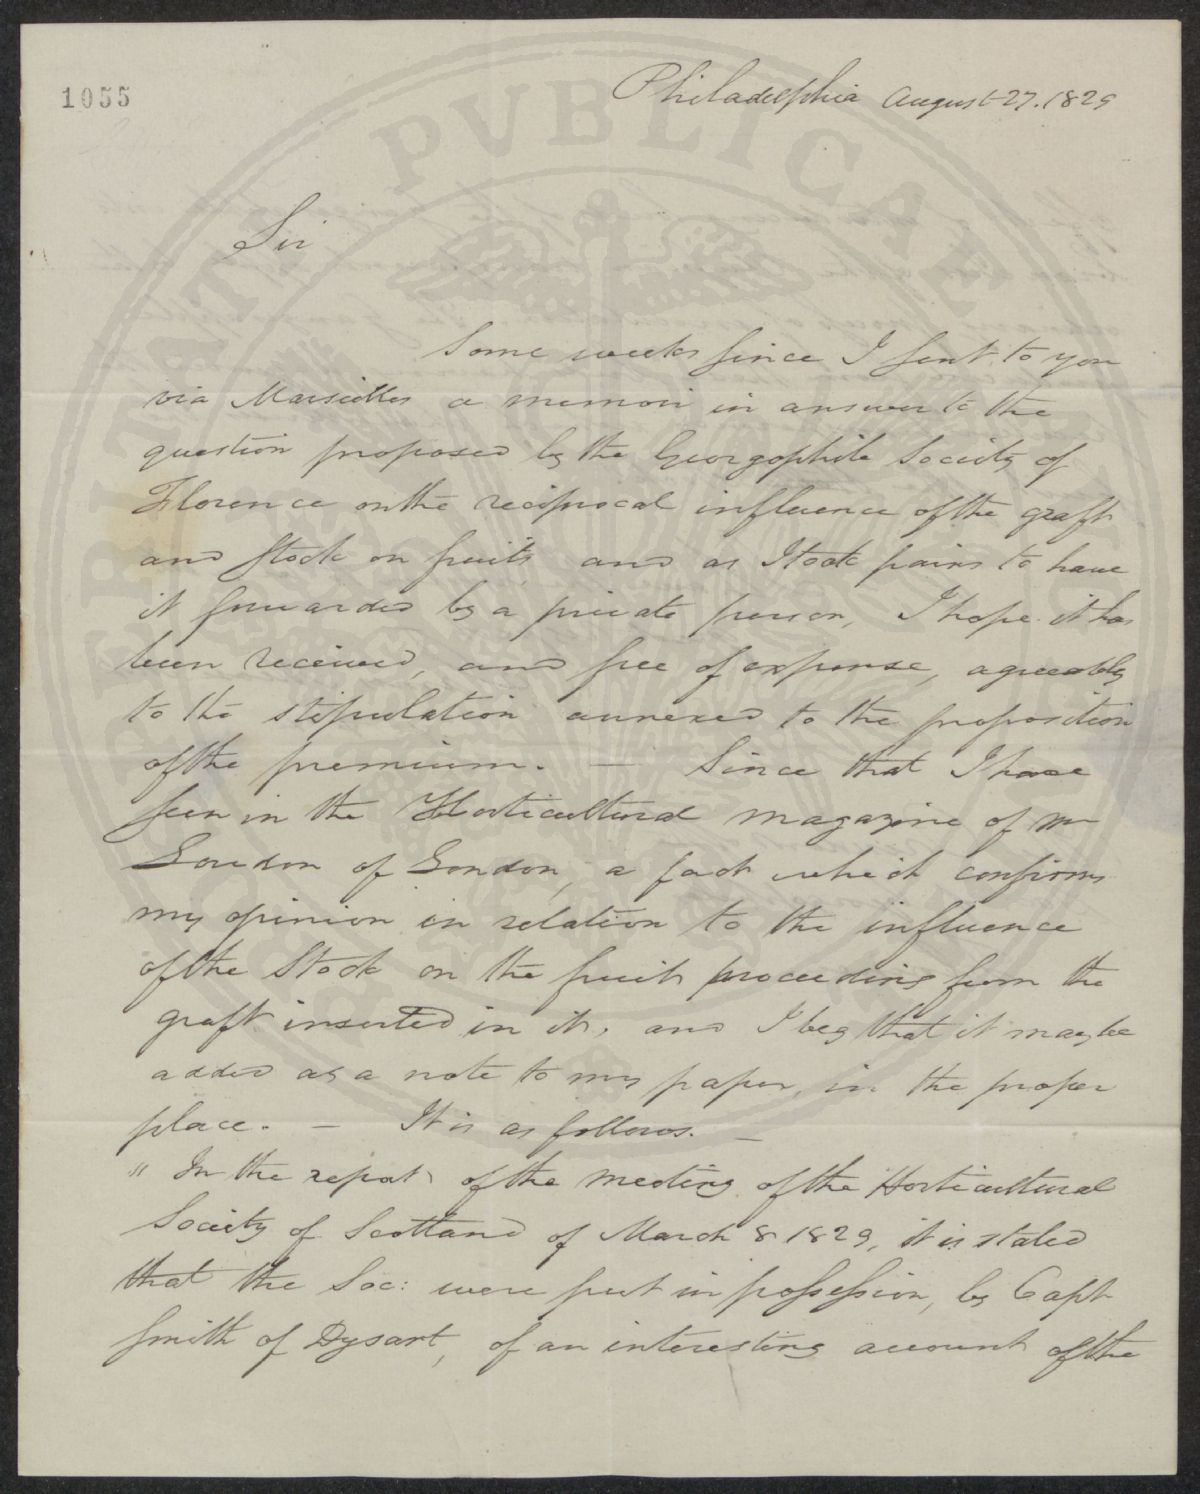 1055
Philadelphia August 27. 1829
Sir
Some weeks since I sent to you
via Marseilles a memoir in answer to the
question proposed by the Georgophile Society of
Florence on the reciprocal influence of the graft
and stock on fruits and as I took pains to have
it forwarded by a private person, I hope it has
been received, and free of expense, agreeably
to the stipulation annexed to the proposition
of the premium. — Since that I have
seen in the Horticultural magazine of Mr
Loudon of London, a fact which confirms
my opinion in relation to the influence
of the Stock on the fruit proceeding from the
graft inserted in it, and I beg that it may be
added as a note to my paper, in the proper
place. — It is as follows. —
" In the report of the meeting of the Horticultural
Society of Scotland of March 8 1829, it is stated
that the Soc: were put in possession, by Capt
Smith of Dysart, of an interesting account of the